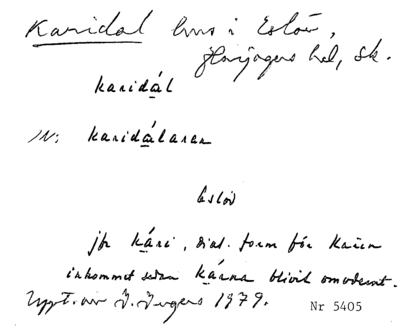 Karidal hus i Eslöv,
Harjagers hd, Sk.
karidál
/N: karidálaran
Eslöv
jfr kári, dial. form för Karin
inkommet sedan kárna blivit omodernt.
Uppt. av I. Ingers 1979.
Nr 5405